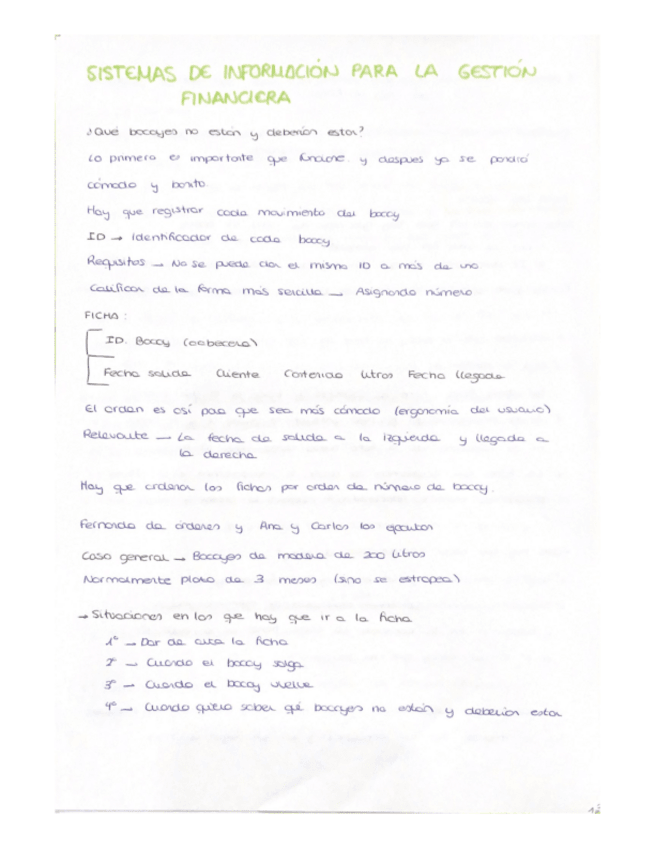 SISTEMAS DE INFORMACIÓN PARA LA GESTIÓN
FINANCIERA
¿Qué bocoyes no están y deberían estar?
Lo primero es importante que funcione y después ya se pondrá
cómodo y bonito
Hay que registrar cada movimiento del bocoy
ID → Identificador de cada bocoy
Requisitos → No se puede dar el mismo ID a más de uno
Calificar de la forma más sencilla → Asignando número
FICHA:
ID. Bocoy (cabecera)
Fecha salida Cliente Contenido Litros Fecha llegada
El orden es así para que sea más cómodo (ergonomía del usuario)
Relevante → La fecha de salida a la izquierda y llegada a
la derecha
Hay que ordenar las fichas por orden de número de bocoy.
Fernando da órdenes y Ana y Carlos las ejecutan
Caso general → Bocoyes de madera de 200 litros
Normalmente plazo de 3 meses (sino se estropea)
→ Situaciones en las que hay que ir a la ficha
1º → Dar de alta la ficha
2º → Cuando el bocoy salga
3º → Cuando el bocoy vuelve
4º → Cuando quiero saber qué bocoyes no están y deberían estar